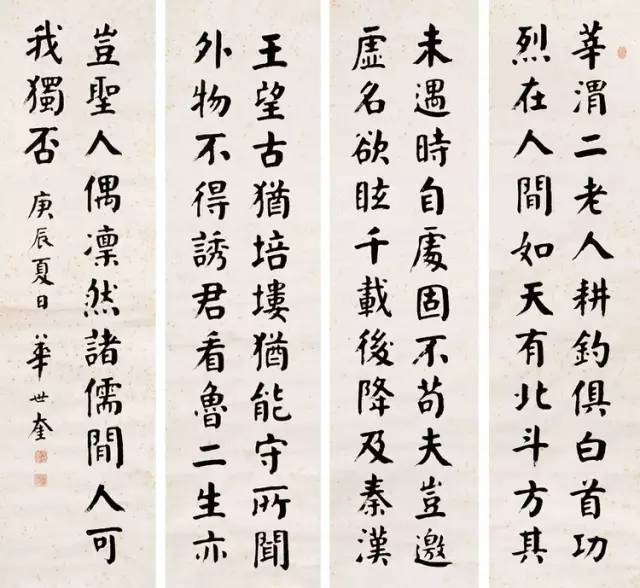 莘渭二老人耕釣俱白首功
烈在人間如天有北斗方其
未遇時自處固不苟夫豈邀
虛名欲眩千載後降及秦漢
王望古猶培塿猶能守所聞
外物不得誘君看魯二生亦
豈聖人偶凜然諸儒間人可
我獨否 庚辰夏日 華世奎